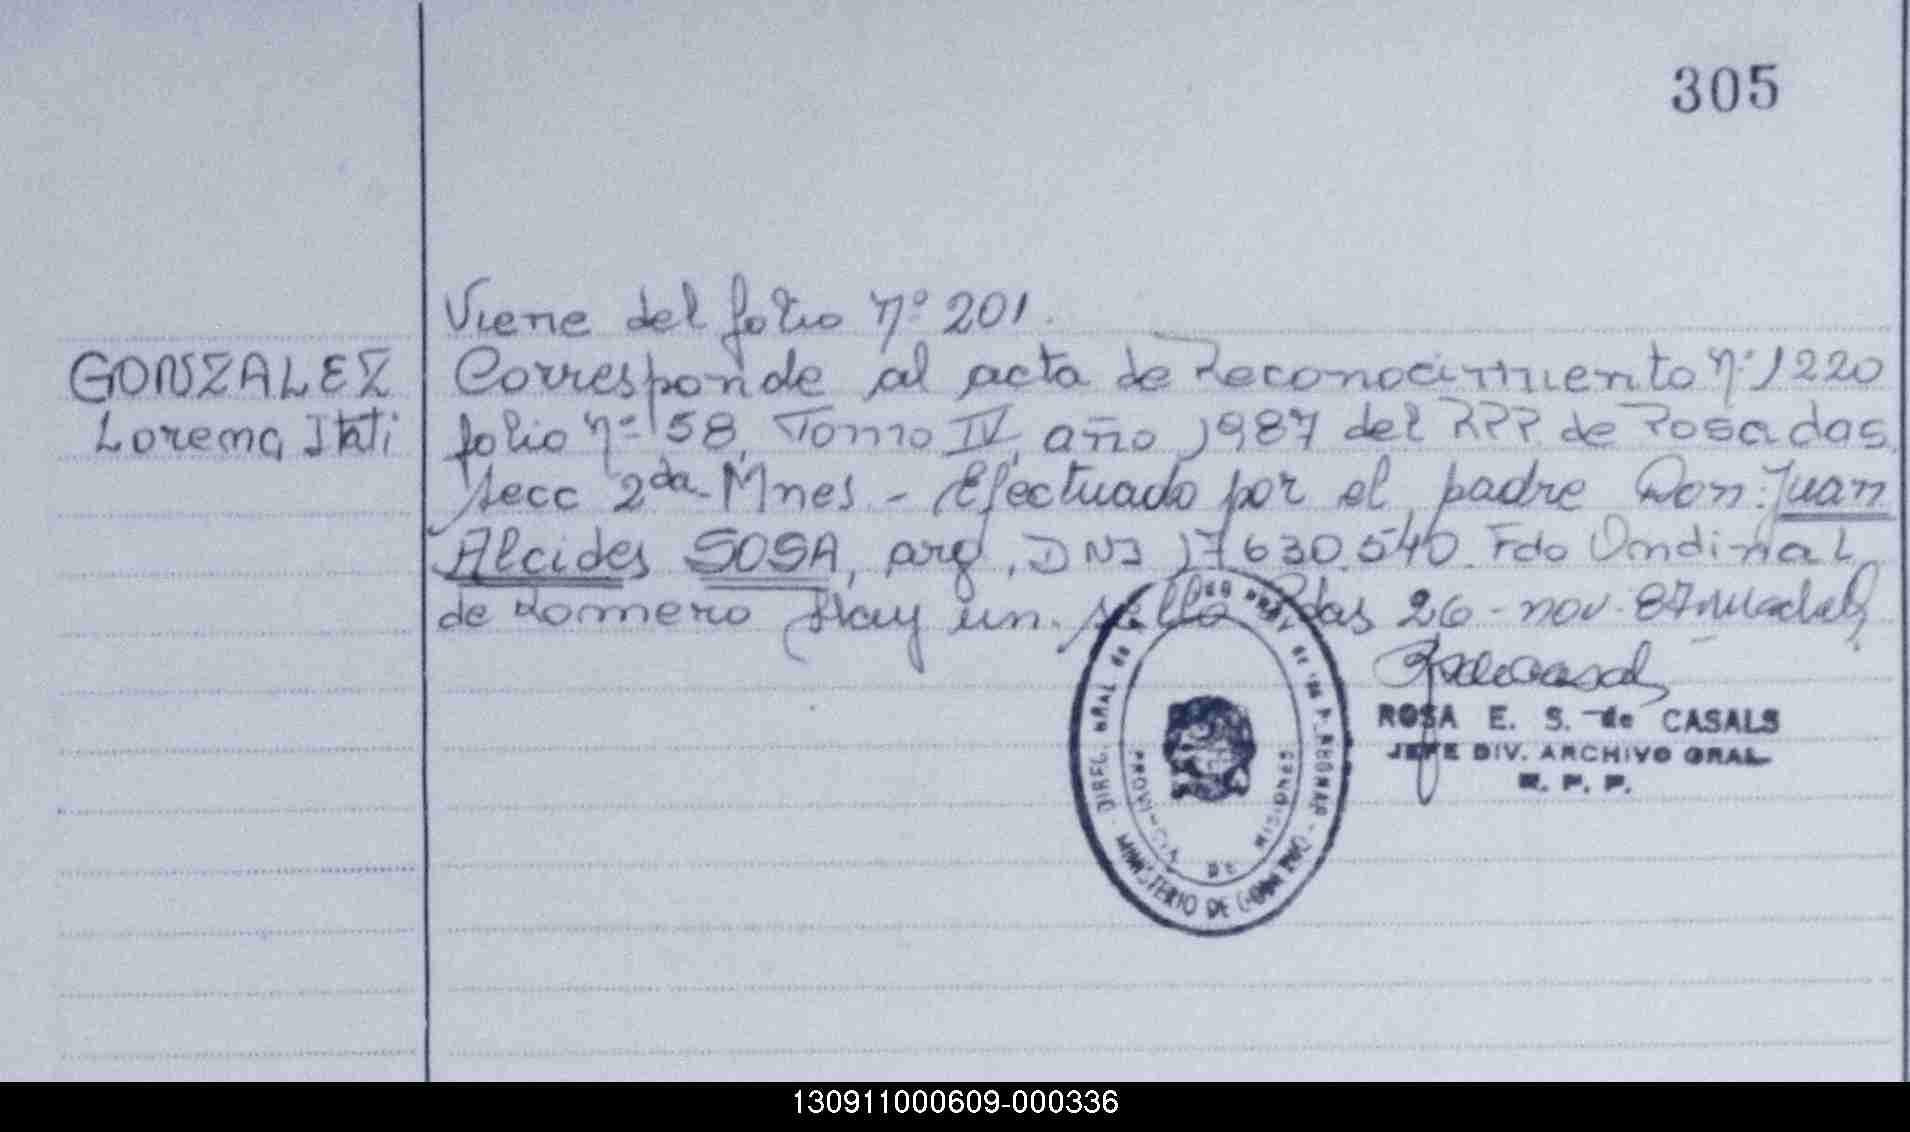 305
Viene del folio nº 201.
GONZALEZ
Lorena Itati
Corresponde al acta de Reconocimiento nº 1220
folio nº 58, Tomo IV, año 1987 del RPP. de Posadas,
Secc 2da - Mnes. - Efectuado por el padre Don: Juan
Alcides SOSA, arg, DNI 17.630.540. Fdo Ondina L
de Romero Hay un sello Pdas 26 - nov. 87
ROSA E. S. de CASALS
JEFE DIV. ARCHIVO GRAL
R. P. P.
DIREC. GRAL de
MINISTERIO DE GOBIERNO
PROVINCIA DE MISIONES
130911000609-000336